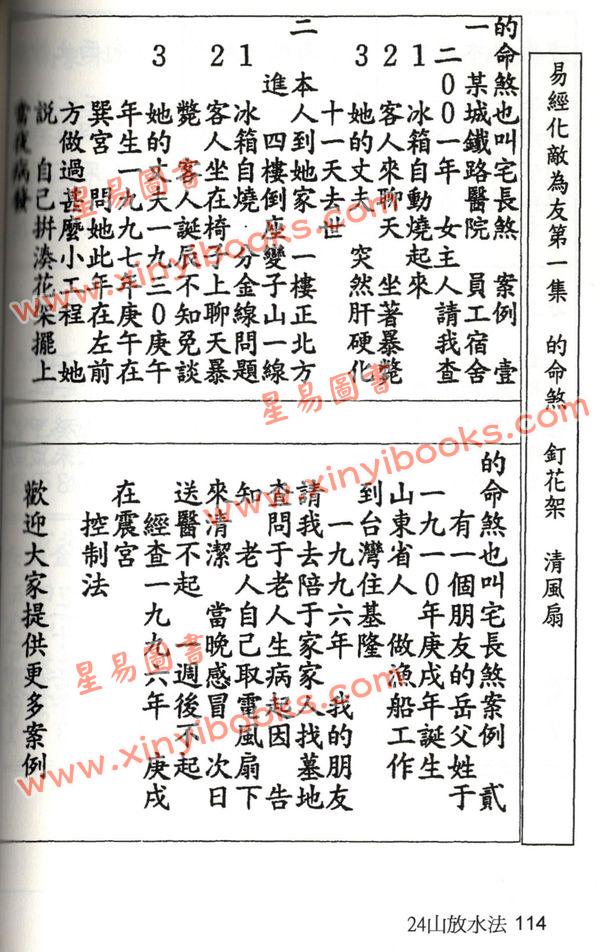 易經化敵為友第一集 的命煞 釘花架 清風扇
的命煞也叫宅長煞 案例 壹
一 某城鐵路醫院 員工宿舍
二00一年 女主人請我查
1 冰箱自動燒起來
2 客人來聊天 坐著暴斃
3 她的丈夫 突然肝硬化
十一天去世
二 本人到她家 一樓正北方
進 四樓倒座變子山一線
1 冰箱自燒 分金線問題
2 客人坐在椅子上聊天暴
斃 客人誕辰不知免談
3 她的丈夫一九三0庚午
年生一九九七年庚午在
巽宮 問她此年在左前
方做過甚麼小工程 她
說 自己拼湊花架擺上
當夜病發
的命煞也叫宅長煞案例 貳
有一個朋友的岳父姓于
一九一0年庚戌年誕生
山東省人 做漁船工作
到台灣住基隆
一九九六年 我的朋友
請我去陪于家家人找墓地
查問于老人生病起因 告
知 老人自己取電風扇下
來清潔 當晚感冒 次日
送醫不起 一週後不起
經查一九九六年 庚戌
在震宮
控制法
歡迎大家提供更多案例
24山放水法 114
星易圖書
www.xinyibooks.com
星易圖書
www.xinyibooks.com
星易圖書
www.xinyibooks.com